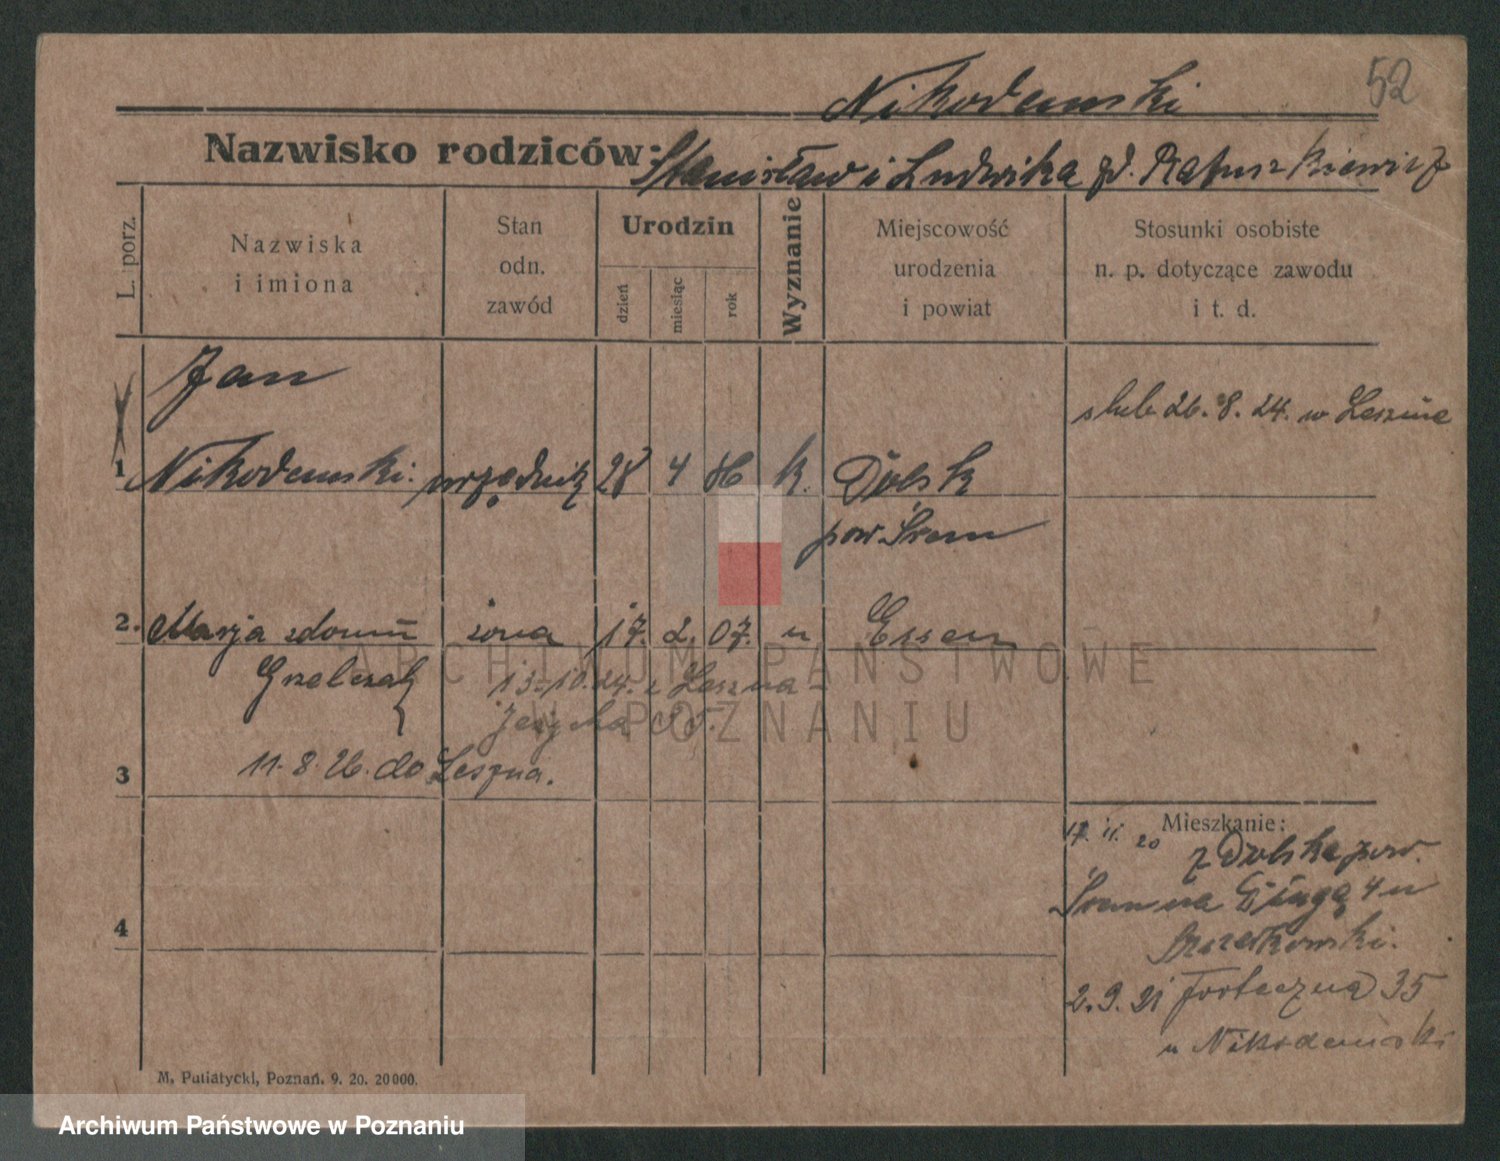 52
Nikodemski
Nazwisko rodziców: Stanisław i Ludwika zd. Ratuszkiewicz
L. porz.
Nazwiska
i imiona
Stan
odn.
zawód
Urodzin
dzień
miesiąc
rok
Wyznanie
Miejscowość
urodzenia
i powiat
Stosunki osobiste
n. p. dotyczące zawodu
i t. d.
Jan
ślub 26. 8. 24. w Lesznie
1 Nikodemski urzędnik 28 4 86 k. Dolsk
pow Śrem
2. Marja z domu żona 17. 2. 07. " Essen
Grzelczak 13. 10. 24. z Leszna -
35.
3 11. 8. 26. do Leszna.
4
Mieszkanie:
17. 11. 20 z Dolska pow.
Śrem na Długą 4 u
2. 9. 21 Forteczna 35
u Nikodemski
M. Putiatycki, Poznań. 9. 20. 20000.
ARCHIWUM PAŃSTWOWE
W POZNANIU
Archiwum Państwowe w Poznaniu